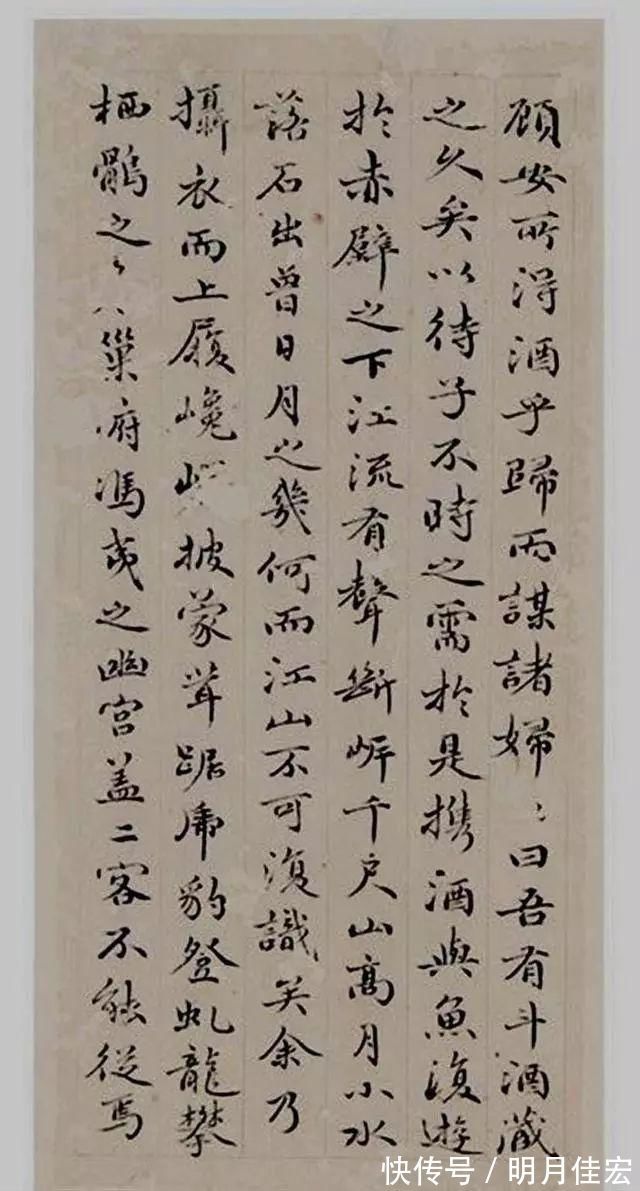 顧安所得酒乎歸而謀諸婦〻曰吾有斗酒藏
之久矣以待子不時之需於是携酒與魚復遊
於赤壁之下江流有聲斷岸千尺山高月小水
落石出曾日月之幾何而江山不可復識矣余乃
攝衣而上履巉披蒙茸踞虎豹登虬龍攀
栖鶻之巢俯馮夷之幽宮盖二客不能從焉
快传号／明月佳宏